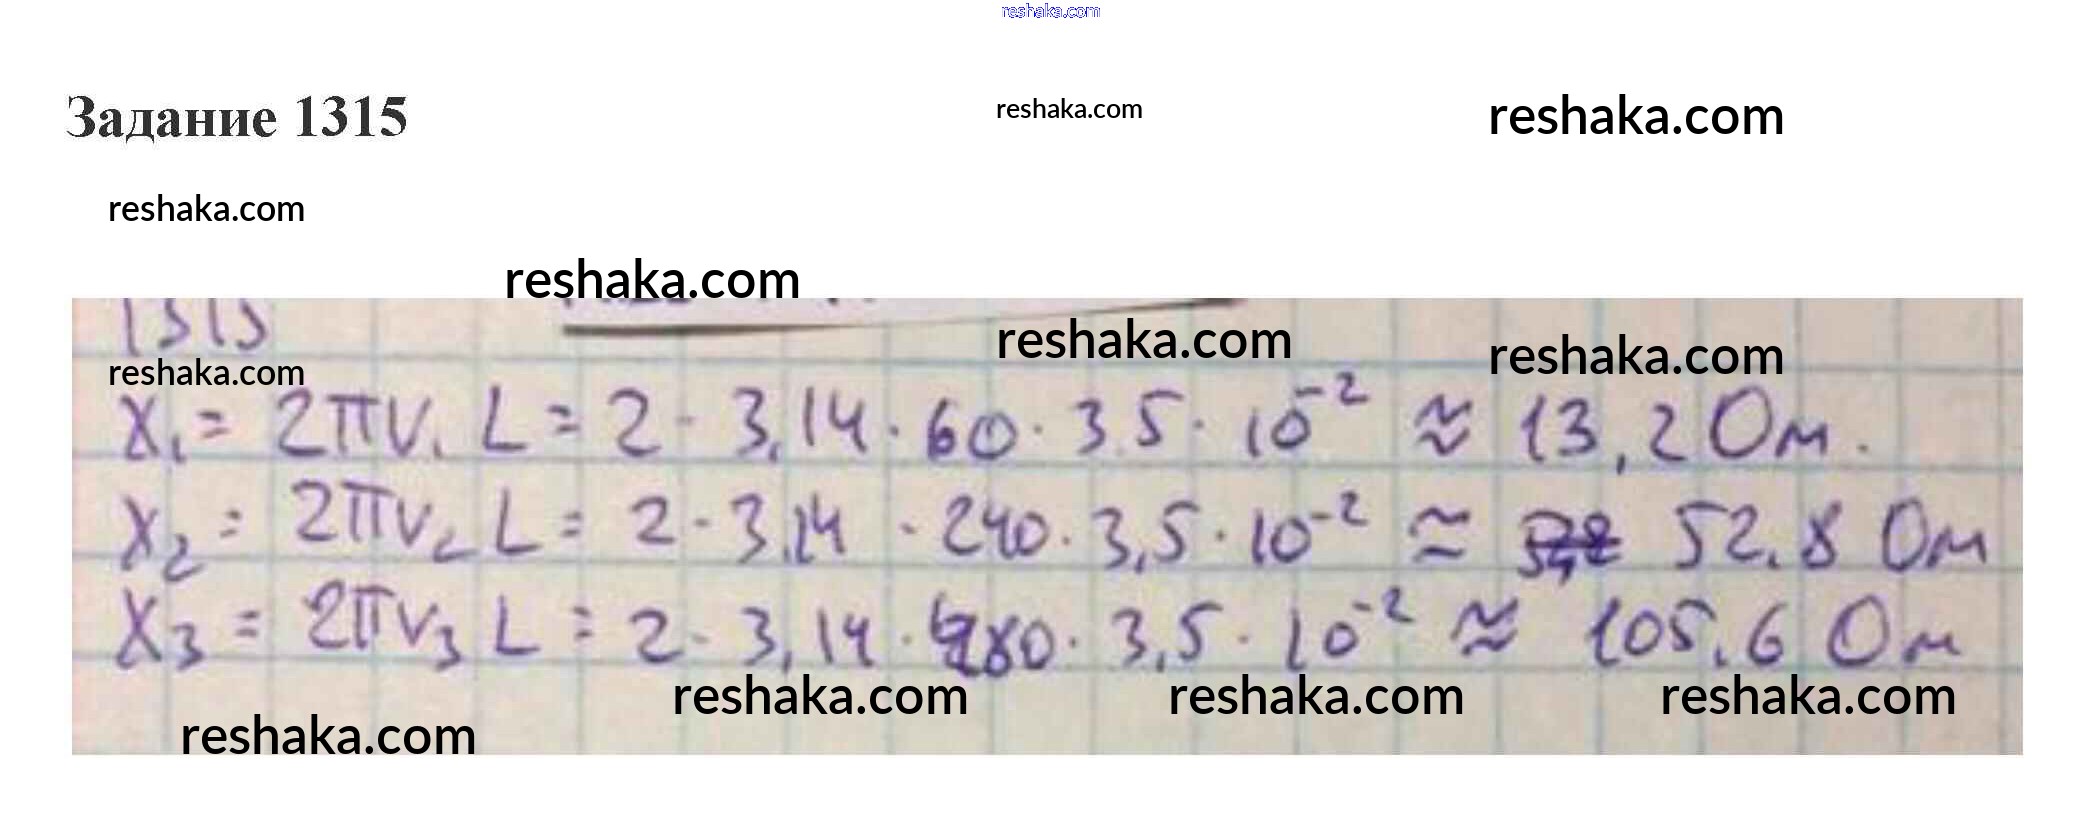 reshaka.com
Задание 1315
reshaka.com
reshaka.com
reshaka.com
reshaka.com
1315
reshaka.com
reshaka.com
reshaka.com
X₁ = 2πν₁ L = 2 · 3,14 · 60 · 3.5 · 10⁻² ≈ 13,2 Ом.
X₂ = 2πν₂ L = 2 · 3,14 · 240 · 3,5 · 10⁻² ≈ 52.8 Ом
X₃ = 2πν₃ L = 2 · 3,14 · 480 · 3,5 · 10⁻² ≈ 105.6 Ом
reshaka.com
reshaka.com
reshaka.com
reshaka.com